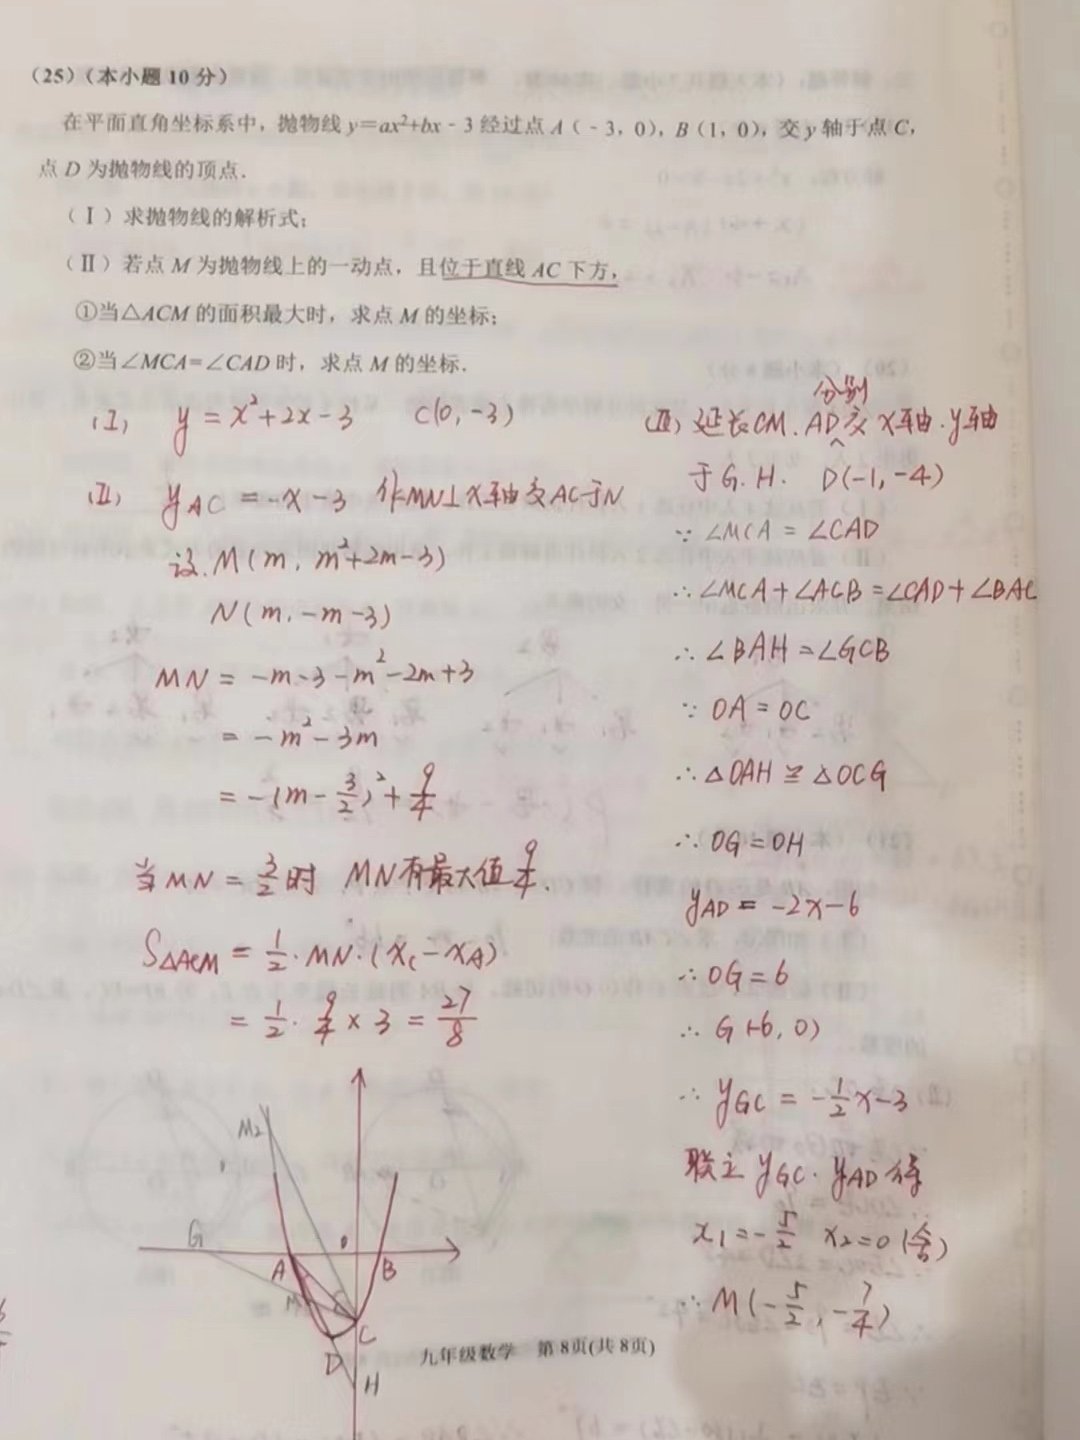 （25）（本小题10分）
在平面直角坐标系中，抛物线y=ax²+bx﹣3经过点A（﹣3，0），B（1，0），交y轴于点C，
点D为抛物线的顶点．
（Ⅰ）求抛物线的解析式；
（Ⅱ）若点M为抛物线上的一动点，且位于直线AC下方，
①当△ACM的面积最大时，求点M的坐标；
②当∠MCA=∠CAD时，求点M的坐标．
(I) y = x²+2x-3 C(0,-3)
(II) yAC = -x-3 作MN⊥x轴交AC于N
设.M(m, m²+2m-3)
N(m,-m-3)
MN = -m-3-m²-2m+3
= -m²-3m
= -(m-3/2)²+9/4
当MN=3/2时 MN有最大值9/4.
S△ACM = 1/2·MN·(xC-xA)
= 1/2·9/4×3 = 27/8
分别
(II) 延长CM.AD交x轴.y轴
于G.H. D(-1,-4)
∵∠MCA=∠CAD
∴∠MCA+∠ACB=∠CAD+∠BAC
∴∠BAH=∠GCB
∵OA=OC
∴△OAH≌△OCG
∴OG=OH
yAD = -2x-6
∴OG=6
∴G(-6,0)
∴yGC = -1/2x-3
联立yGC.yAD得
x1=-5/2 x2=0(舍)
∴M(-5/2,-7/4)
M2
G
A
B
M
C
D
H
九年级数学 第8页(共8页)